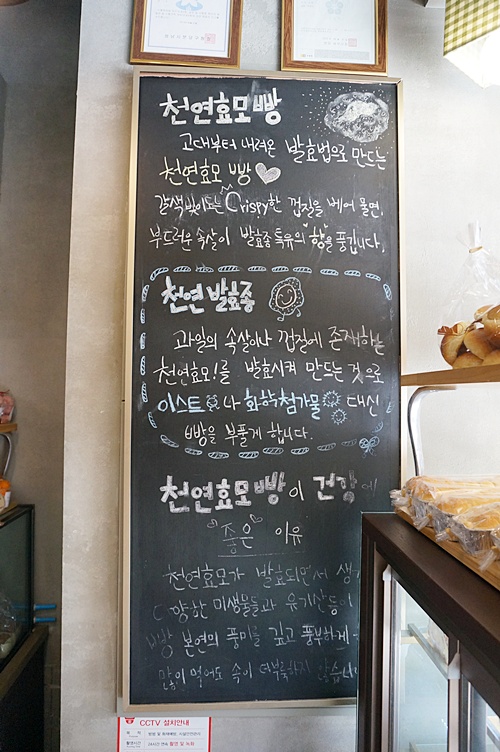 천연효모빵
고대부터 내려온 발효법으로 만드는
천연효모 빵
갈색빛이도는 Crispy한 껍질을 베어 물면,
부드러운 속살이 발효종 특유의 향을 풍깁니다.
천연 발효종
과일의 속살이나 껍질에 존재하는
천연효모!를 발효시켜 만드는 것으로
이스트나 화학첨가물 대신
빵을 부풀게 합니다.
천연효모빵이 건강에
"좋은" 이유
천연효모가 발효되면서 생
다양한 미생물들과 유기산등이
빵 본연의 풍미를 깊고 풍부하게
많이 먹어도 속이 더부룩하지 않습니
CCTV 설치안내